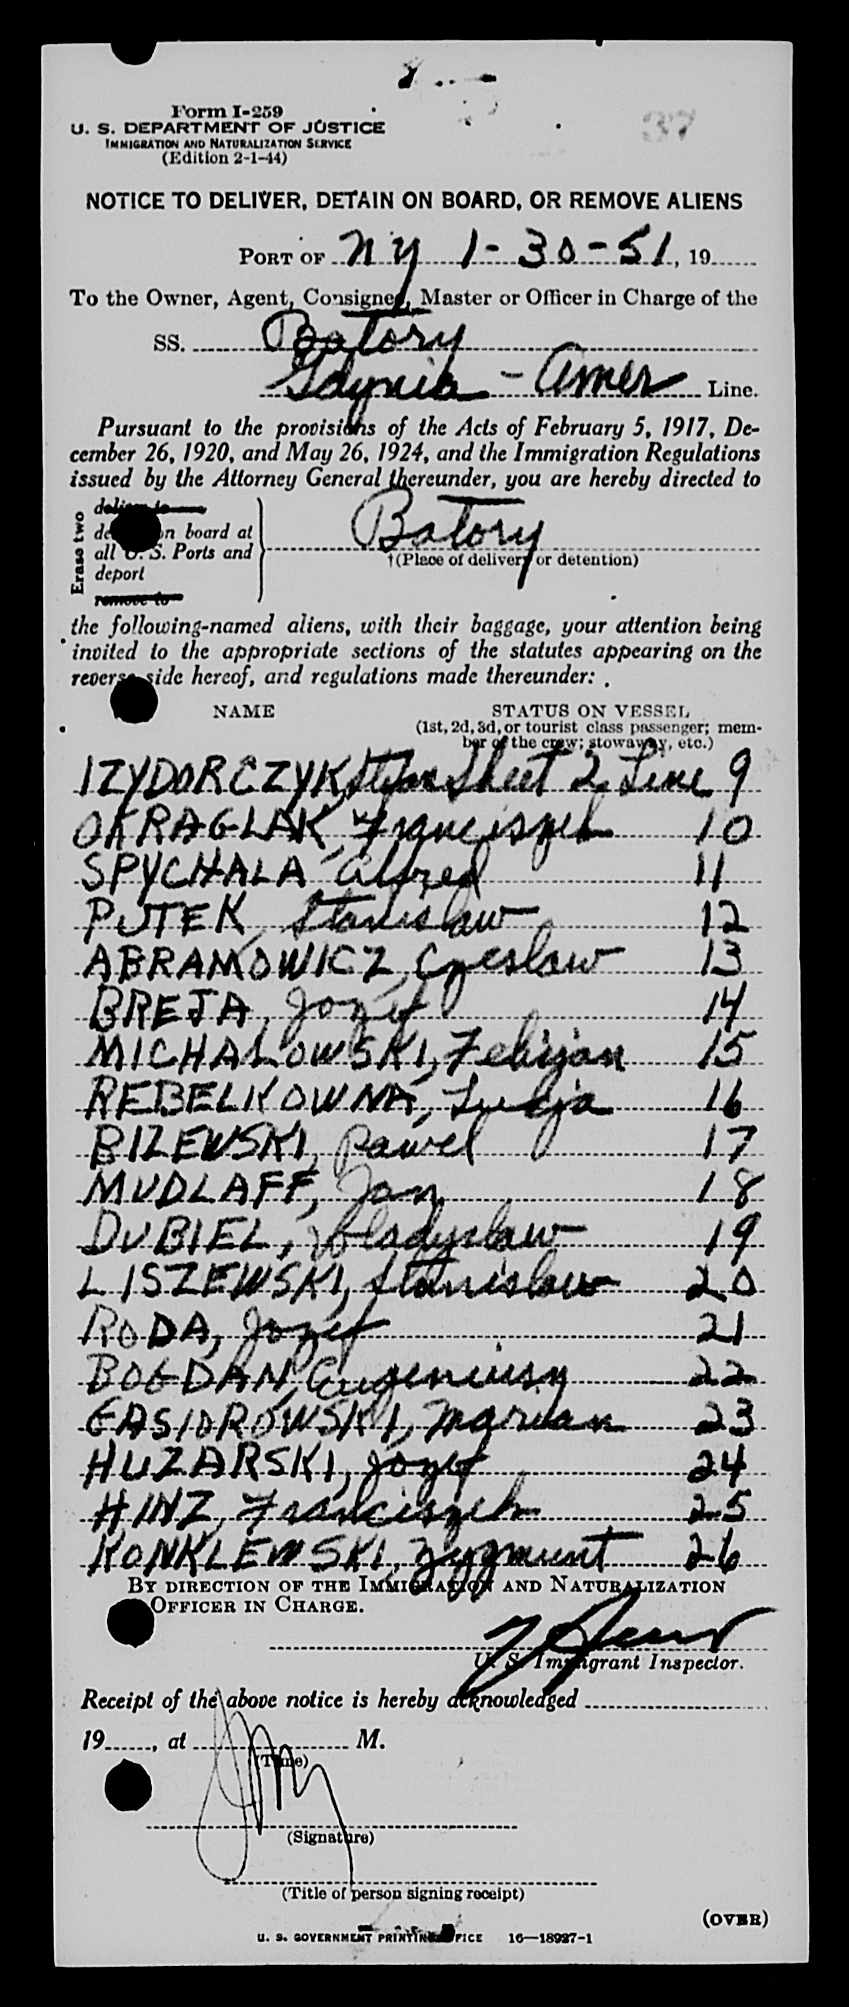 37
Form I-259
U. S. DEPARTMENT OF JUSTICE
IMMIGRATION AND NATURALIZATION SERVICE
(Edition 2-1-44)
NOTICE TO DELIVER, DETAIN ON BOARD, OR REMOVE ALIENS
PORT OF NY 1-30-51, 19
To the Owner, Agent, Consignee, Master or Officer in Charge of the
SS. Batory
Gdynia - Amer Line.
Pursuant to the provisions of the Acts of February 5, 1917, De-
cember 26, 1920, and May 26, 1924, and the Immigration Regulations
issued by the Attorney General thereunder, you are hereby directed to
Erase two
deliver to
on board at
all U. S. Ports and
deport
remove to
Batory
†(Place of delivery or detention)
the following-named aliens, with their baggage, your attention being
invited to the appropriate sections of the statutes appearing on the
reverse side hereof, and regulations made thereunder:
NAME STATUS ON VESSEL
(1st, 2d, 3d, or tourist class passenger; mem-
ber of the crew; stowaway, etc.)
IZYDORCZYK, Sheet 2 Line 9
OKRAGLAK, Franciszek 10
SPYCHALA Alfred 11
PUTEK Stanislaw 12
ABRAMOWICZ, Czeslaw 13
BREJA, Jozef 14
MICHALOWSKI, Felicjan 15
REBELKOWNA, Lucja 16
BIZEWSKI, Pawel 17
MUDLAFF, Jan 18
DUBIEL, Wladyslaw 19
LISZEWSKI, Stanislaw 20
RODA, Jozef 21
BOGDAN, Eugeniusz 22
GASIOROWSKI, Marian 23
HUZARSKI, Jozef 24
HINZ, Franciszek 25
KONKLEWSKI, Zygmunt 26
BY DIRECTION OF THE IMMIGRATION AND NATURALIZATION
OFFICER IN CHARGE.
U. S. Immigrant Inspector.
Receipt of the above notice is hereby acknowledged
19, at M.
(Time)
(Signature)
(Title of person signing receipt)
(OVER)
U. S. GOVERNMENT PRINTING OFFICE 16—18927-1